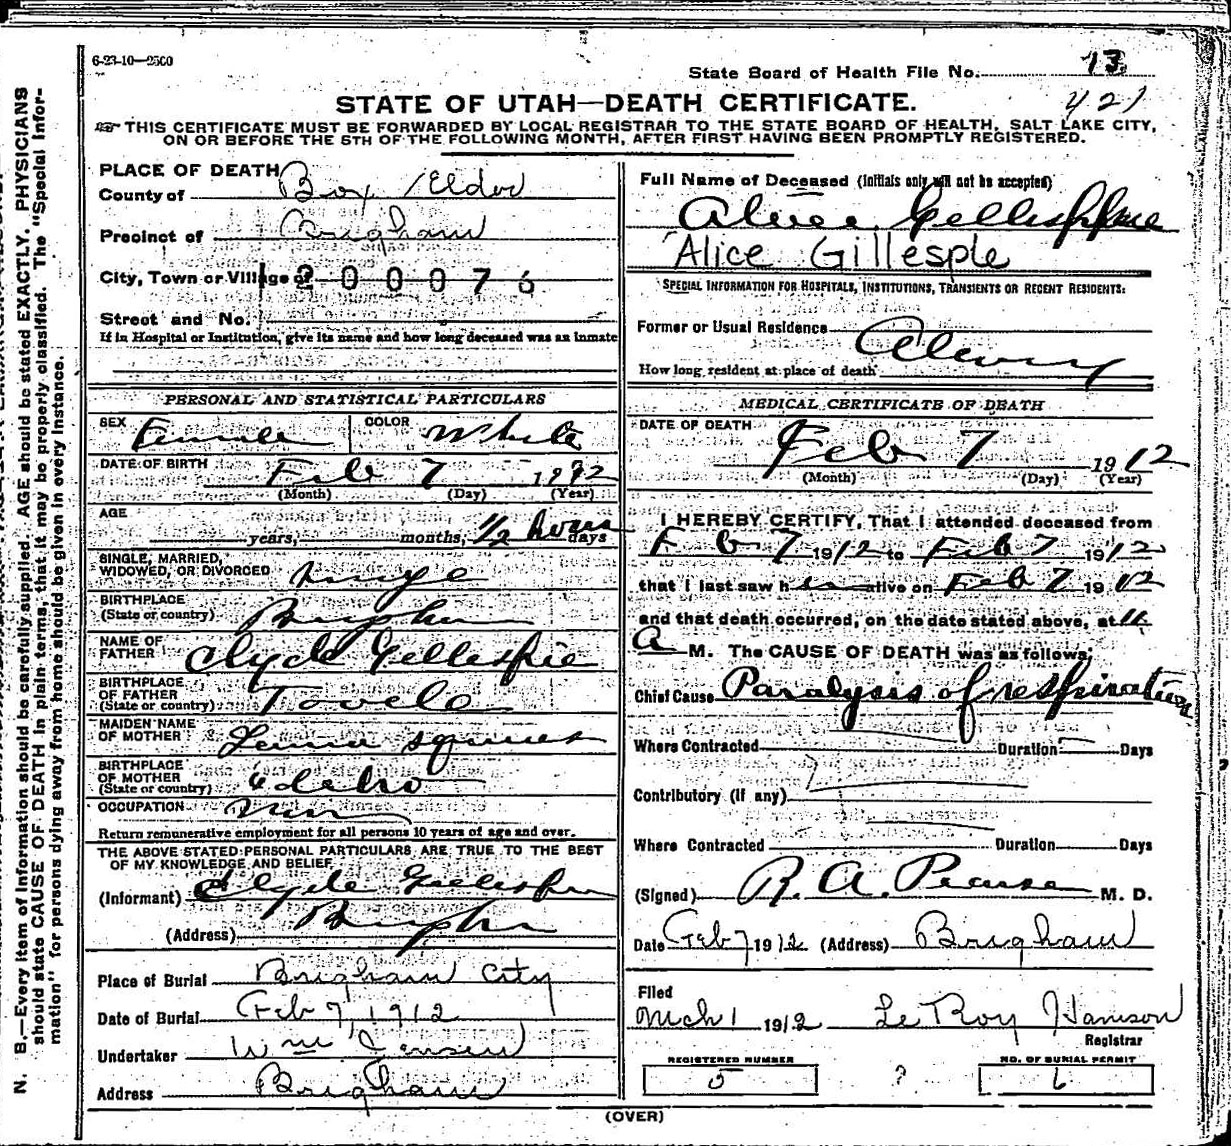 6-23-10—2500
State Board of Health File No. 13
421
STATE OF UTAH—DEATH CERTIFICATE.
THIS CERTIFICATE MUST BE FORWARDED BY LOCAL REGISTRAR TO THE STATE BOARD OF HEALTH, SALT LAKE CITY,
ON OR BEFORE THE 5TH OF THE FOLLOWING MONTH, AFTER FIRST HAVING BEEN PROMPTLY REGISTERED.
PLACE OF DEATH
County of Box Elder
Precinct of Brigham
City, Town or Village of 200076
Street and No.
If in Hospital or Institution, give its name and how long deceased was an inmate
PERSONAL AND STATISTICAL PARTICULARS
SEX Female COLOR White
DATE OF BIRTH Feb 7 1912
(Month) (Day) (Year)
AGE
years, months, 1/2 hours days
SINGLE, MARRIED,
WIDOWED, OR DIVORCED single
BIRTHPLACE
(State or country) Brigham
NAME OF
FATHER Clyde Gillespie
BIRTHPLACE
OF FATHER
(State or country) Tooele
MAIDEN NAME
OF MOTHER Squires
BIRTHPLACE
OF MOTHER
(State or country) Idaho
OCCUPATION
Return remunerative employment for all persons 10 years of age and over.
THE ABOVE STATED PERSONAL PARTICULARS ARE TRUE TO THE BEST
OF MY KNOWLEDGE AND BELIEF
(Informant) Clyde Gillespie
(Address) Brigham
Place of Burial Brigham City
Date of Burial Feb 7, 1912
Undertaker Wm Jensen
Address Brigham
Full Name of Deceased (Initials only will not be accepted)
Alice Gillespie
Alice Gillesple
SPECIAL INFORMATION FOR HOSPITALS, INSTITUTIONS, TRANSIENTS OR RECENT RESIDENTS:
Former or Usual Residence
How long resident at place of death
MEDICAL CERTIFICATE OF DEATH
DATE OF DEATH
Feb 7 1912
(Month) (Day) (Year)
I HEREBY CERTIFY, That I attended deceased from
Feb 7 1912 to Feb 7 1912
that I last saw her alive on Feb 7 1912
and that death occurred, on the date stated above, at 11
A M. The CAUSE OF DEATH was as follows:
Chief Cause Paralysis of respiration
Where Contracted Duration Days
Contributory (if any)
Where Contracted Duration Days
(Signed) R. A. Pearse M. D.
Date Feb 7 1912 (Address) Brigham
Filed
Mch 1 1912 Le Roy Harrison
Registrar
REGISTERED NUMBER
5
?
NO. OF BURIAL PERMIT
6
(OVER)
N. B.—Every item of information should be carefully supplied. AGE should be stated EXACTLY. PHYSICIANS
should state CAUSE OF DEATH in plain terms, that it may be properly classified. The "Special Infor-
mation" for persons dying away from home should be given in every instance.